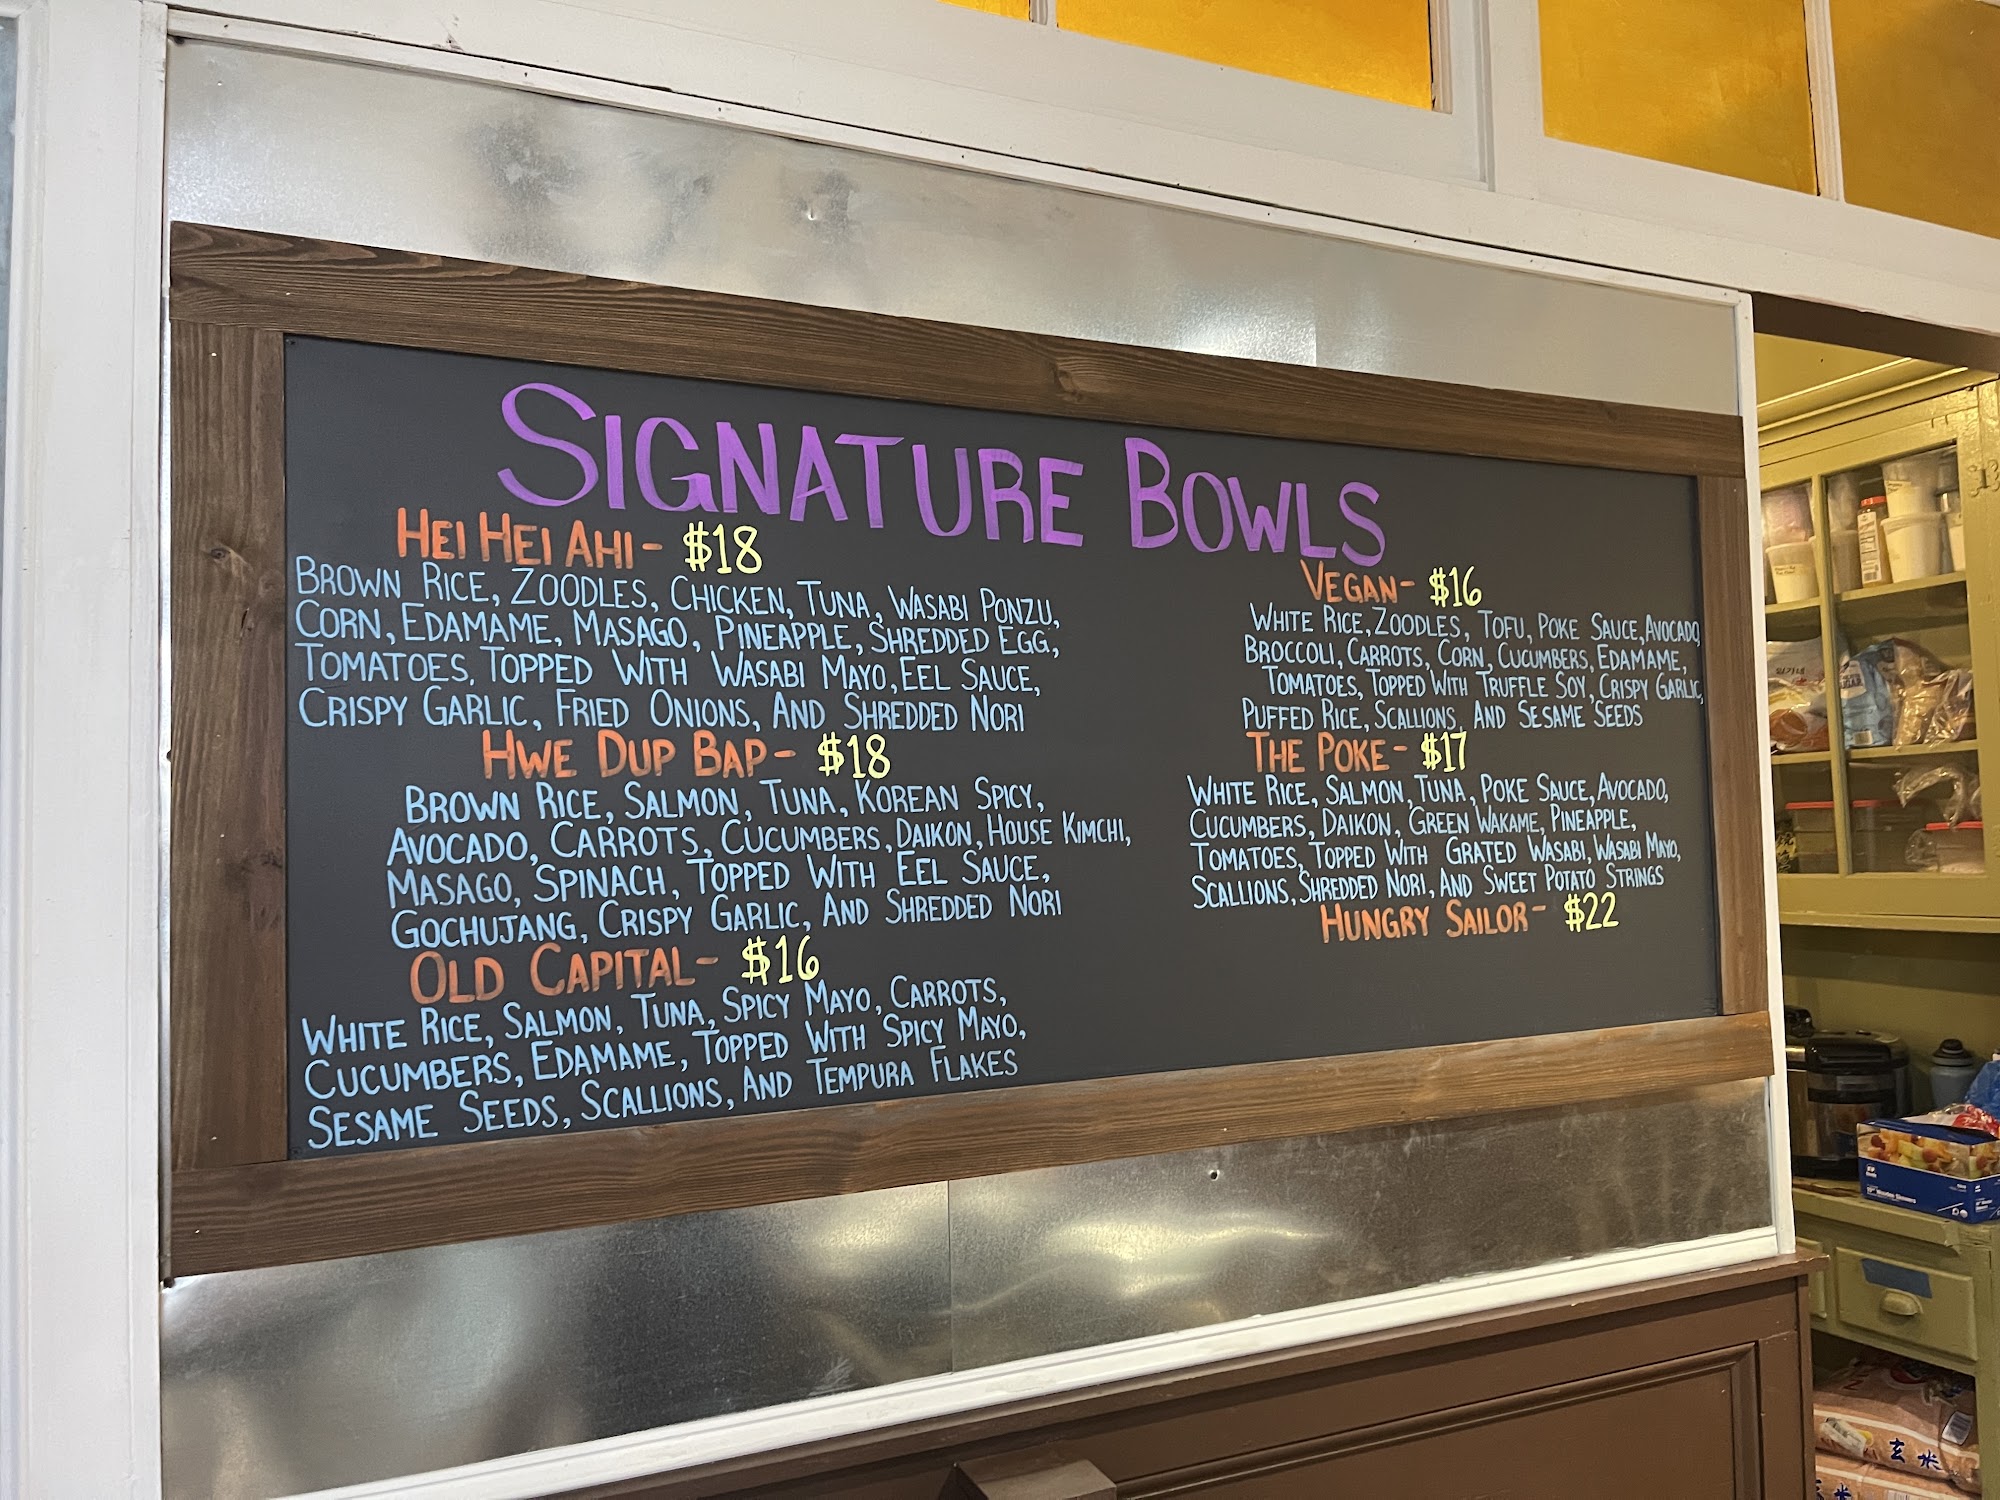 SIGNATURE BOWLS
HEI HEI AHI - $18
BROWN RICE, ZOODLES, CHICKEN, TUNA, WASABI PONZU,
CORN, EDAMAME, MASAGO, PINEAPPLE, SHREDDED EGG,
TOMATOES, TOPPED WITH WASABI MAYO, EEL SAUCE,
CRISPY GARLIC, FRIED ONIONS, AND SHREDDED NORI
HWE DUP BAP - $18
BROWN RICE, SALMON, TUNA, KOREAN SPICY,
AVOCADO, CARROTS, CUCUMBERS, DAIKON, HOUSE KIMCHI,
MASAGO, SPINACH, TOPPED WITH EEL SAUCE,
GOCHUJANG, CRISPY GARLIC, AND SHREDDED NORI
OLD CAPITAL - $16
WHITE RICE, SALMON, TUNA, SPICY MAYO, CARROTS,
CUCUMBERS, EDAMAME, TOPPED WITH SPICY MAYO,
SESAME SEEDS, SCALLIONS, AND TEMPURA FLAKES
VEGAN - $16
WHITE RICE, ZOODLES, TOFU, POKE SAUCE, AVOCADO,
BROCCOLI, CARROTS, CORN, CUCUMBERS, EDAMAME,
TOMATOES, TOPPED WITH TRUFFLE SOY, CRISPY GARLIC,
PUFFED RICE, SCALLIONS, AND SESAME SEEDS
THE POKE - $17
WHITE RICE, SALMON, TUNA, POKE SAUCE, AVOCADO,
CUCUMBERS, DAIKON, GREEN WAKAME, PINEAPPLE,
TOMATOES, TOPPED WITH GRATED WASABI, WASABI MAYO,
SCALLIONS, SHREDDED NORI, AND SWEET POTATO STRINGS
HUNGRY SAILOR - $22
玄米